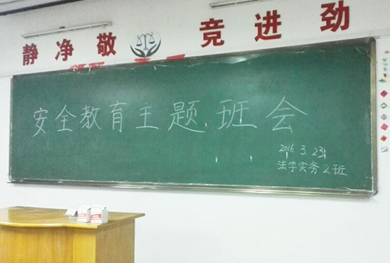 静净敬 竞进劲
安全教育主题班会
2016.3.23
法学实务2班